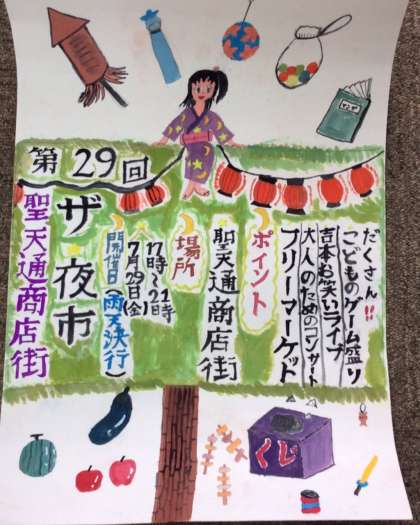 第29回
聖天通商店街
ザ・夜市
開催日(雨天決行)
7月29日(金)
17時〜21時
場所
聖天通商店街
ポイント
フリーマーケット
大人のためのコンサート
吉本お笑いライブ
こどものゲーム盛り
だくさん!!
くじ